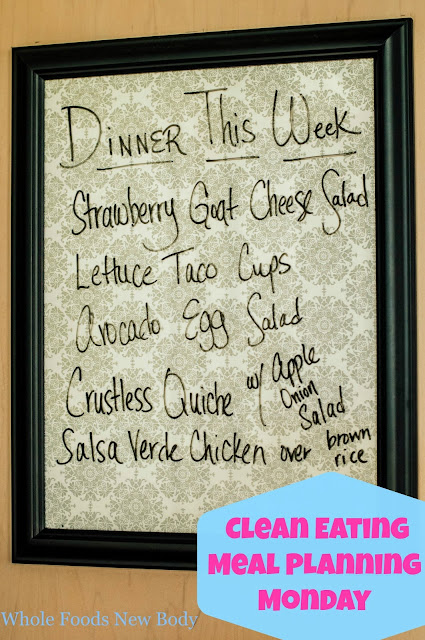 Dinner This Week
Strawberry Goat Cheese Salad
Lettuce Taco Cups
Avocado Egg Salad
Crustless Quiche w/ Apple
Onion
Salad
Salsa Verde Chicken over brown
rice
Clean Eating
Meal Planning
Monday
Whole Foods New Body